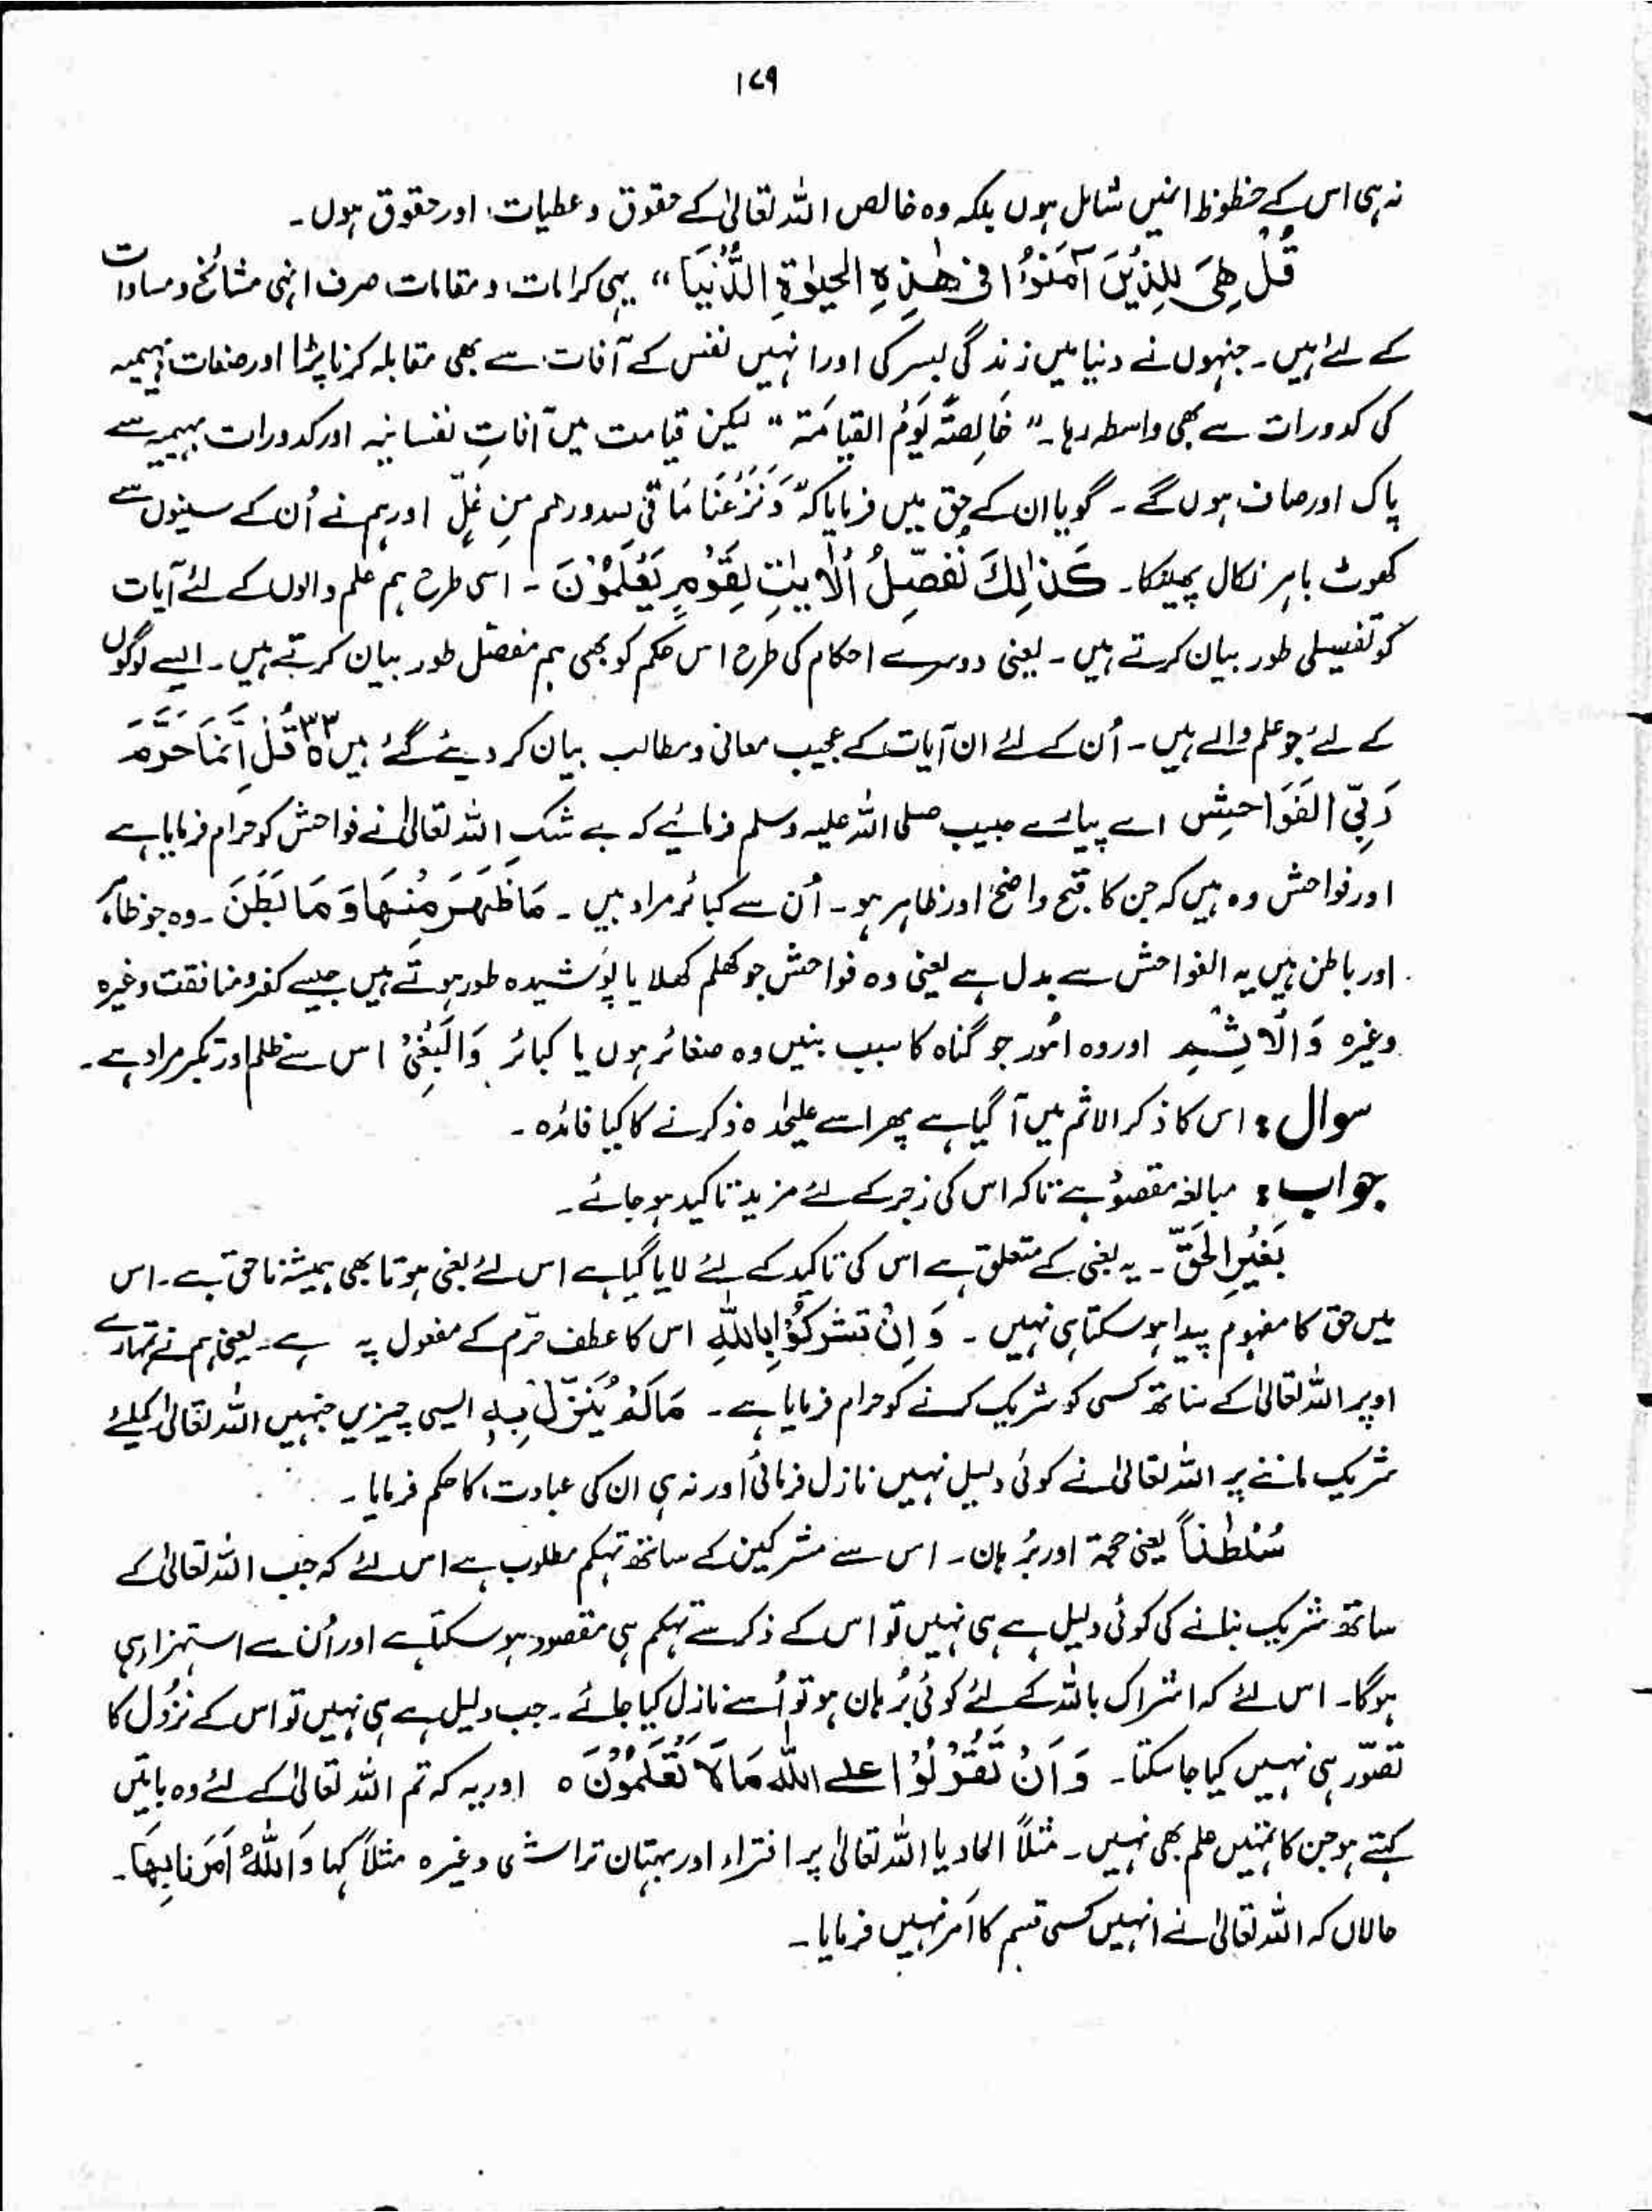 ۱۷۹
نہ ہی اس کے حظوظ انمیں شامل ہوں بلکہ وہ خالص اللہ تعالیٰ کے حقوق و عطیات اور حقوق ہوں۔
قُلْ هِىَ لِلَّذِیْنَ آمَنُوْا فِیْ هٰذِهِ الحیٰوةِ الدُّنْیَا“ یہی کرامات و مقامات صرف انہی مشائخ و سادات
کے لئے ہیں۔ جنہوں نے دنیا میں زندگی بسر کی اور انہیں نفس کے آفات سے بھی مقابلہ کرنا پڑا اور صفات بہیمیہ
کی کدورات سے بھی واسطہ رہا۔ ”خَالِصَةً یَّوْمَ القِیَامَةِ“ لیکن قیامت میں آفاتِ نفسانیہ اور کدورات بہیمیہ سے
پاک اور صاف ہوں گے۔ گویا ان کے حق میں فرمایا کہ وَنَزَعْنَا مَا فِیْ صدورهم مِنْ غِلٍّ اور ہم نے اُن کے سینوں سے
کھوٹ باہر نکال پھینکا۔ كَذٰلِكَ نُفَصِّلُ الْاٰیٰتِ لِقَوْمٍ یَّعْلَمُوْنَ۔ اسی طرح ہم علم والوں کے لئے آیات
کو تفصیلی طور بیان کرتے ہیں۔ یعنی دوسرے احکام کی طرح اس حکم کو بھی ہم مفصّل طور بیان کرتے ہیں۔ ایسے لوگوں
کے لئے جو علم والے ہیں۔ اُن کے لئے ان آیات کے عجیب معانی و مطالب بیان کر دیئے گئے ہیں ۳۳ قُلْ اِنَّمَا حَرَّمَ
رَبِّیَ الفَوَاحِشَ اے پیارے حبیب صلی اللہ علیہ وسلم فرمائیے کہ بے شک اللہ تعالیٰ نے فواحش کو حرام فرمایا ہے
اور فواحش وہ ہیں کہ جن کا قبح واضح اور ظاہر ہو۔ اُن سے کبائر مراد ہیں۔ مَا ظَهَرَ مِنْهَا وَ مَا بَطَنَ۔ وہ جو ظاہر
اور باطن ہیں یہ الفواحش سے بدل ہے یعنی وہ فواحش جو کھلم کھلا یا پوشیدہ طور ہوتے ہیں جیسے کفر و منافقت وغیرہ
وغیرہ وَالْاِثْمِ اور وہ امور جو گناہ کا سبب بنیں وہ صغائر ہوں یا کبائر وَالْبَغْیَ اس سے ظلم اور تکبر مراد ہے۔
سوال : اس کا ذکر الاثم میں آگیا ہے پھر اسے علیحٰدہ ذکر نے کا کیا فائدہ۔
جواب : مبالغہ مقصود ہے تاکہ اس کی زجر کے لئے مزید تاکید ہو جائے۔
بِغَیْرِ الحَقِّ۔ یہ بغی کے متعلق ہے اس کی تاکید کے لئے لایا گیا ہے اس لئے بغی ہوتا بھی ہمیشہ ناحق ہے۔ اس
میں حق کا مفہوم پیدا ہو سکتا ہی نہیں۔ وَ اِنْ تشركُوْا بِاللّٰهِ اس کا عطف حرّم کے مفعول پہ ہے۔ یعنی ہم نے تمہارے
اوپر اللہ تعالیٰ کے ساتھ کسی کو شریک کرنے کو حرام فرمایا ہے۔ مَا لَمْ یُنَزِّلْ بِهٖ ایسی چیزیں جنہیں اللہ تعالیٰ کیلئے
شریک ماننے پر اللہ تعالیٰ نے کوئی دلیل نہیں نازل فرمائی اور نہ ہی ان کی عبادت کا حکم فرمایا۔
سُلْطٰناً یعنی حجۃ اور بُرہان۔ اس سے مشرکین کے ساتھ تہکم مطلوب ہے اس لئے کہ جب اللہ تعالیٰ کے
ساتھ شریک بنانے کی کوئی دلیل ہے ہی نہیں تو اس کے ذکر سے تہکم ہی مقصود ہو سکتا ہے اور اُن سے استہزاء ہی
ہوگا۔ اس لئے کہ اشراک باللہ کے لئے کوئی بُرہان ہو تو اُسے نازل کیا جائے۔ جب دلیل ہے ہی نہیں تو اس کے نزُول کا
تصوّر ہی نہیں کیا جا سکتا۔ وَ اَنْ تَقُوْلُوْا علے اللّٰه مَا لَا تَعْلَمُوْنَ ہ اور یہ کہ تم اللہ تعالیٰ کے لئے وہ باتیں
کہتے ہو جن کا تمہیں علم بھی نہیں۔ مثلاً الحاد یا اللہ تعالیٰ پر افتراء اور بہتان تراشی وغیرہ مثلاً کہا وَاللّٰهُ اَمَرَنا بِهَا۔
حالاں کہ اللہ تعالیٰ نے انہیں کسی قسم کا اَمر نہیں فرمایا۔